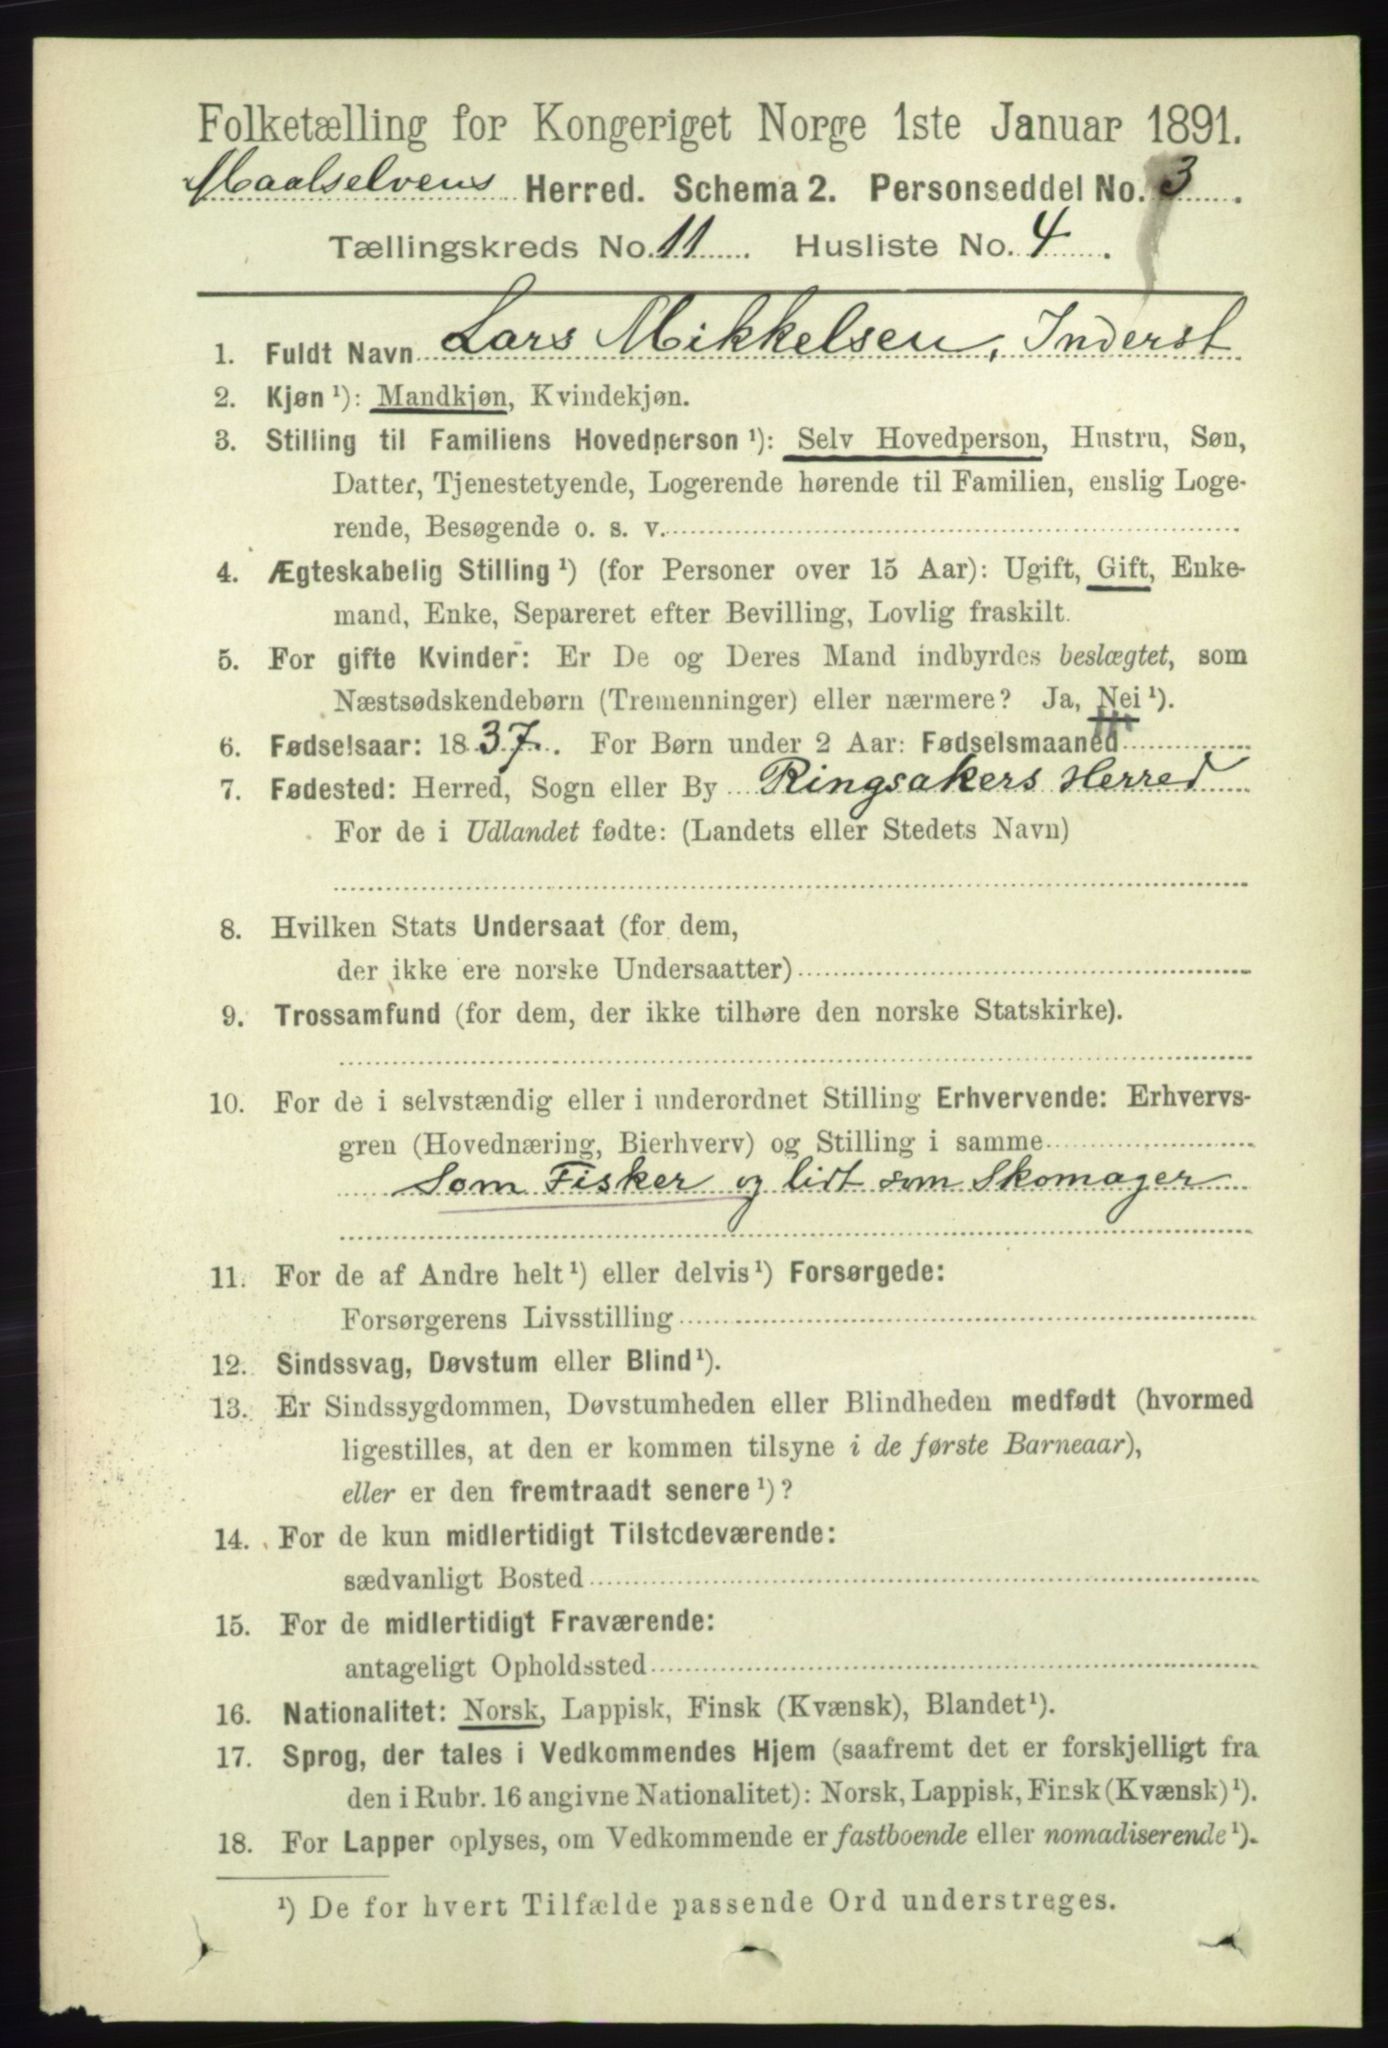 Folketælling for Kongeriget Norge 1ste Januar 1891.
Maalselvens Herred. Schema 2. Personseddel No. 3.
Tællingskreds No. 11. Husliste No. 4.
1. Fuldt Navn Lars Mikkelsen, Inderst
2. Kjøn ¹): Mandkjøn, Kvindekjøn.
3. Stilling til Familiens Hovedperson ¹): Selv Hovedperson, Hustru, Søn,
Datter, Tjenestetyende, Logerende hørende til Familien, enslig Loge-
rende, Besøgende o. s. v.
4. Ægteskabelig Stilling ¹) (for Personer over 15 Aar): Ugift, Gift, Enke-
mand, Enke, Separeret efter Bevilling, Lovlig fraskilt.
5. For gifte Kvinder: Er De og Deres Mand indbyrdes beslægtet, som
Næstsødskendebørn (Tremenninger) eller nærmere? Ja, Nei ¹).
6. Fødselsaar: 1837. For Børn under 2 Aar: Fødselsmaaned
7. Fødested: Herred, Sogn eller By Ringsakers Herred
For de i Udlandet fødte: (Landets eller Stedets Navn)
8. Hvilken Stats Undersaat (for dem,
der ikke ere norske Undersaatter)
9. Trossamfund (for dem, der ikke tilhøre den norske Statskirke).
10. For de i selvstændig eller i underordnet Stilling Erhvervende: Erhvervs-
gren (Hovednæring, Bierhverv) og Stilling i samme
Som Fisker og lidt som Skomager
11. For de af Andre helt ¹) eller delvis ¹) Forsørgede:
Forsørgerens Livsstilling
12. Sindssvag, Døvstum eller Blind ¹).
13. Er Sindssygdommen, Døvstumheden eller Blindheden medfødt (hvormed
ligestilles, at den er kommen tilsyne i de første Barneaar),
eller er den fremtraadt senere ¹)?
14. For de kun midlertidigt Tilstedeværende:
sædvanligt Bosted
15. For de midlertidigt Fraværende:
antageligt Opholdssted
16. Nationalitet: Norsk, Lappisk, Finsk (Kvænsk), Blandet ¹).
17. Sprog, der tales i Vedkommendes Hjem (saafremt det er forskjelligt fra
den i Rubr. 16 angivne Nationalitet): Norsk, Lappisk, Finsk (Kvænsk) ¹).
18. For Lapper oplyses, om Vedkommende er fastboende eller nomadiserende ¹).
¹) De for hvert Tilfælde passende Ord understreges.